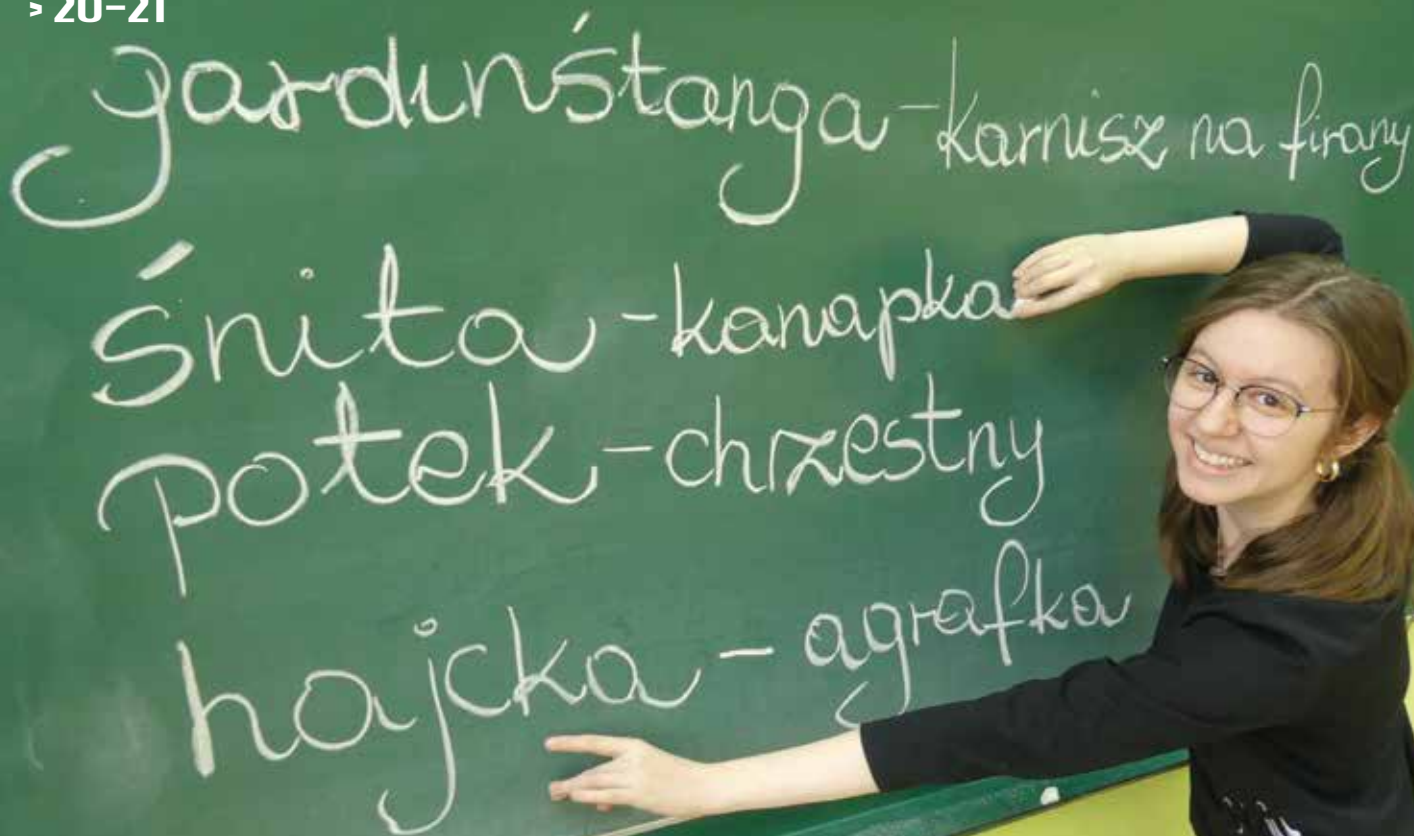 > 20-21
gardinśtanga - karnisz na firany
śnita - kanapka
potek - chrzestny
hajcka - agrafka